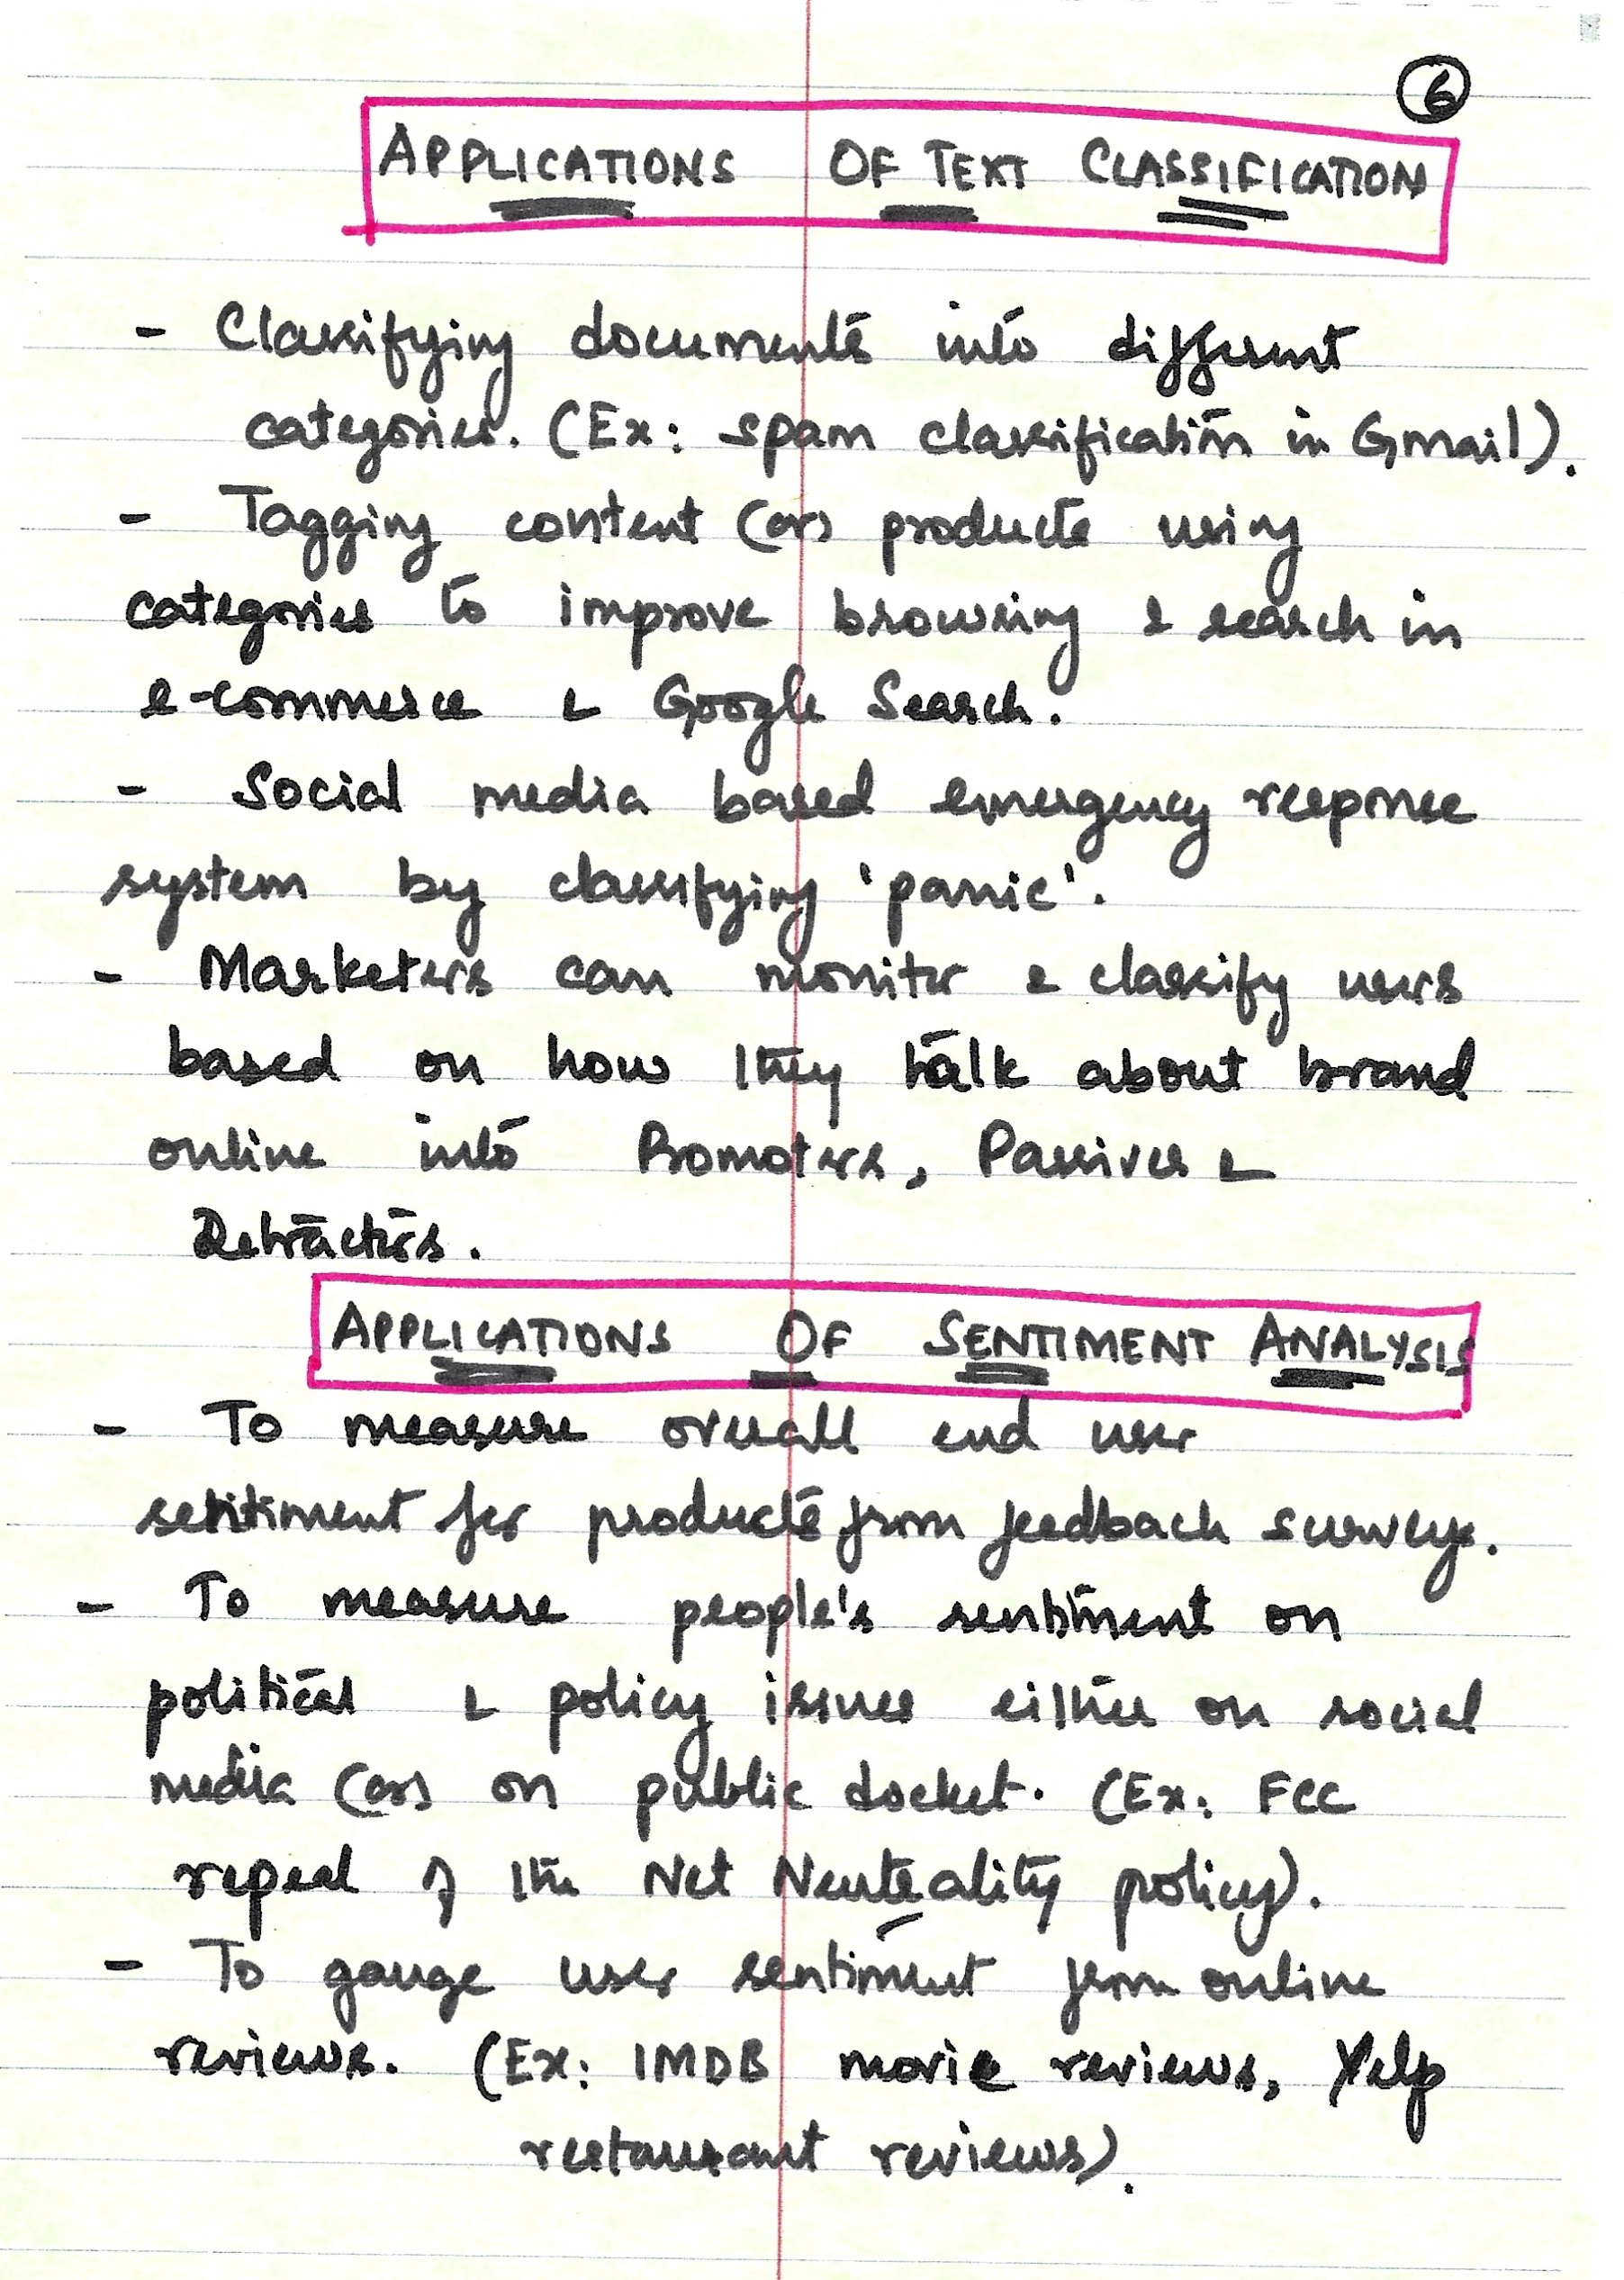 6
APPLICATIONS OF TEXT CLASSIFICATION
- Classifying documents into different
categories. (Ex: spam classification in Gmail).
- Tagging content (or) products using
categories to improve browsing & search in
e-commerce & Google Search.
- Social media based emergency response
system by classifying 'panic'.
- Marketers can monitor & classify users
based on how they talk about brand
online into Promoters, Passives &
Detractors.
APPLICATIONS OF SENTIMENT ANALYSIS
- To measure overall end user
sentiment for products from feedback surveys.
- To measure people's sentiment on
political & policy issues either on social
media (or) on public docket. (Ex: FCC
repeal of the Net Neutrality policy).
- To gauge user sentiment from online
reviews. (Ex: IMDB movie reviews, Yelp
restaurant reviews).